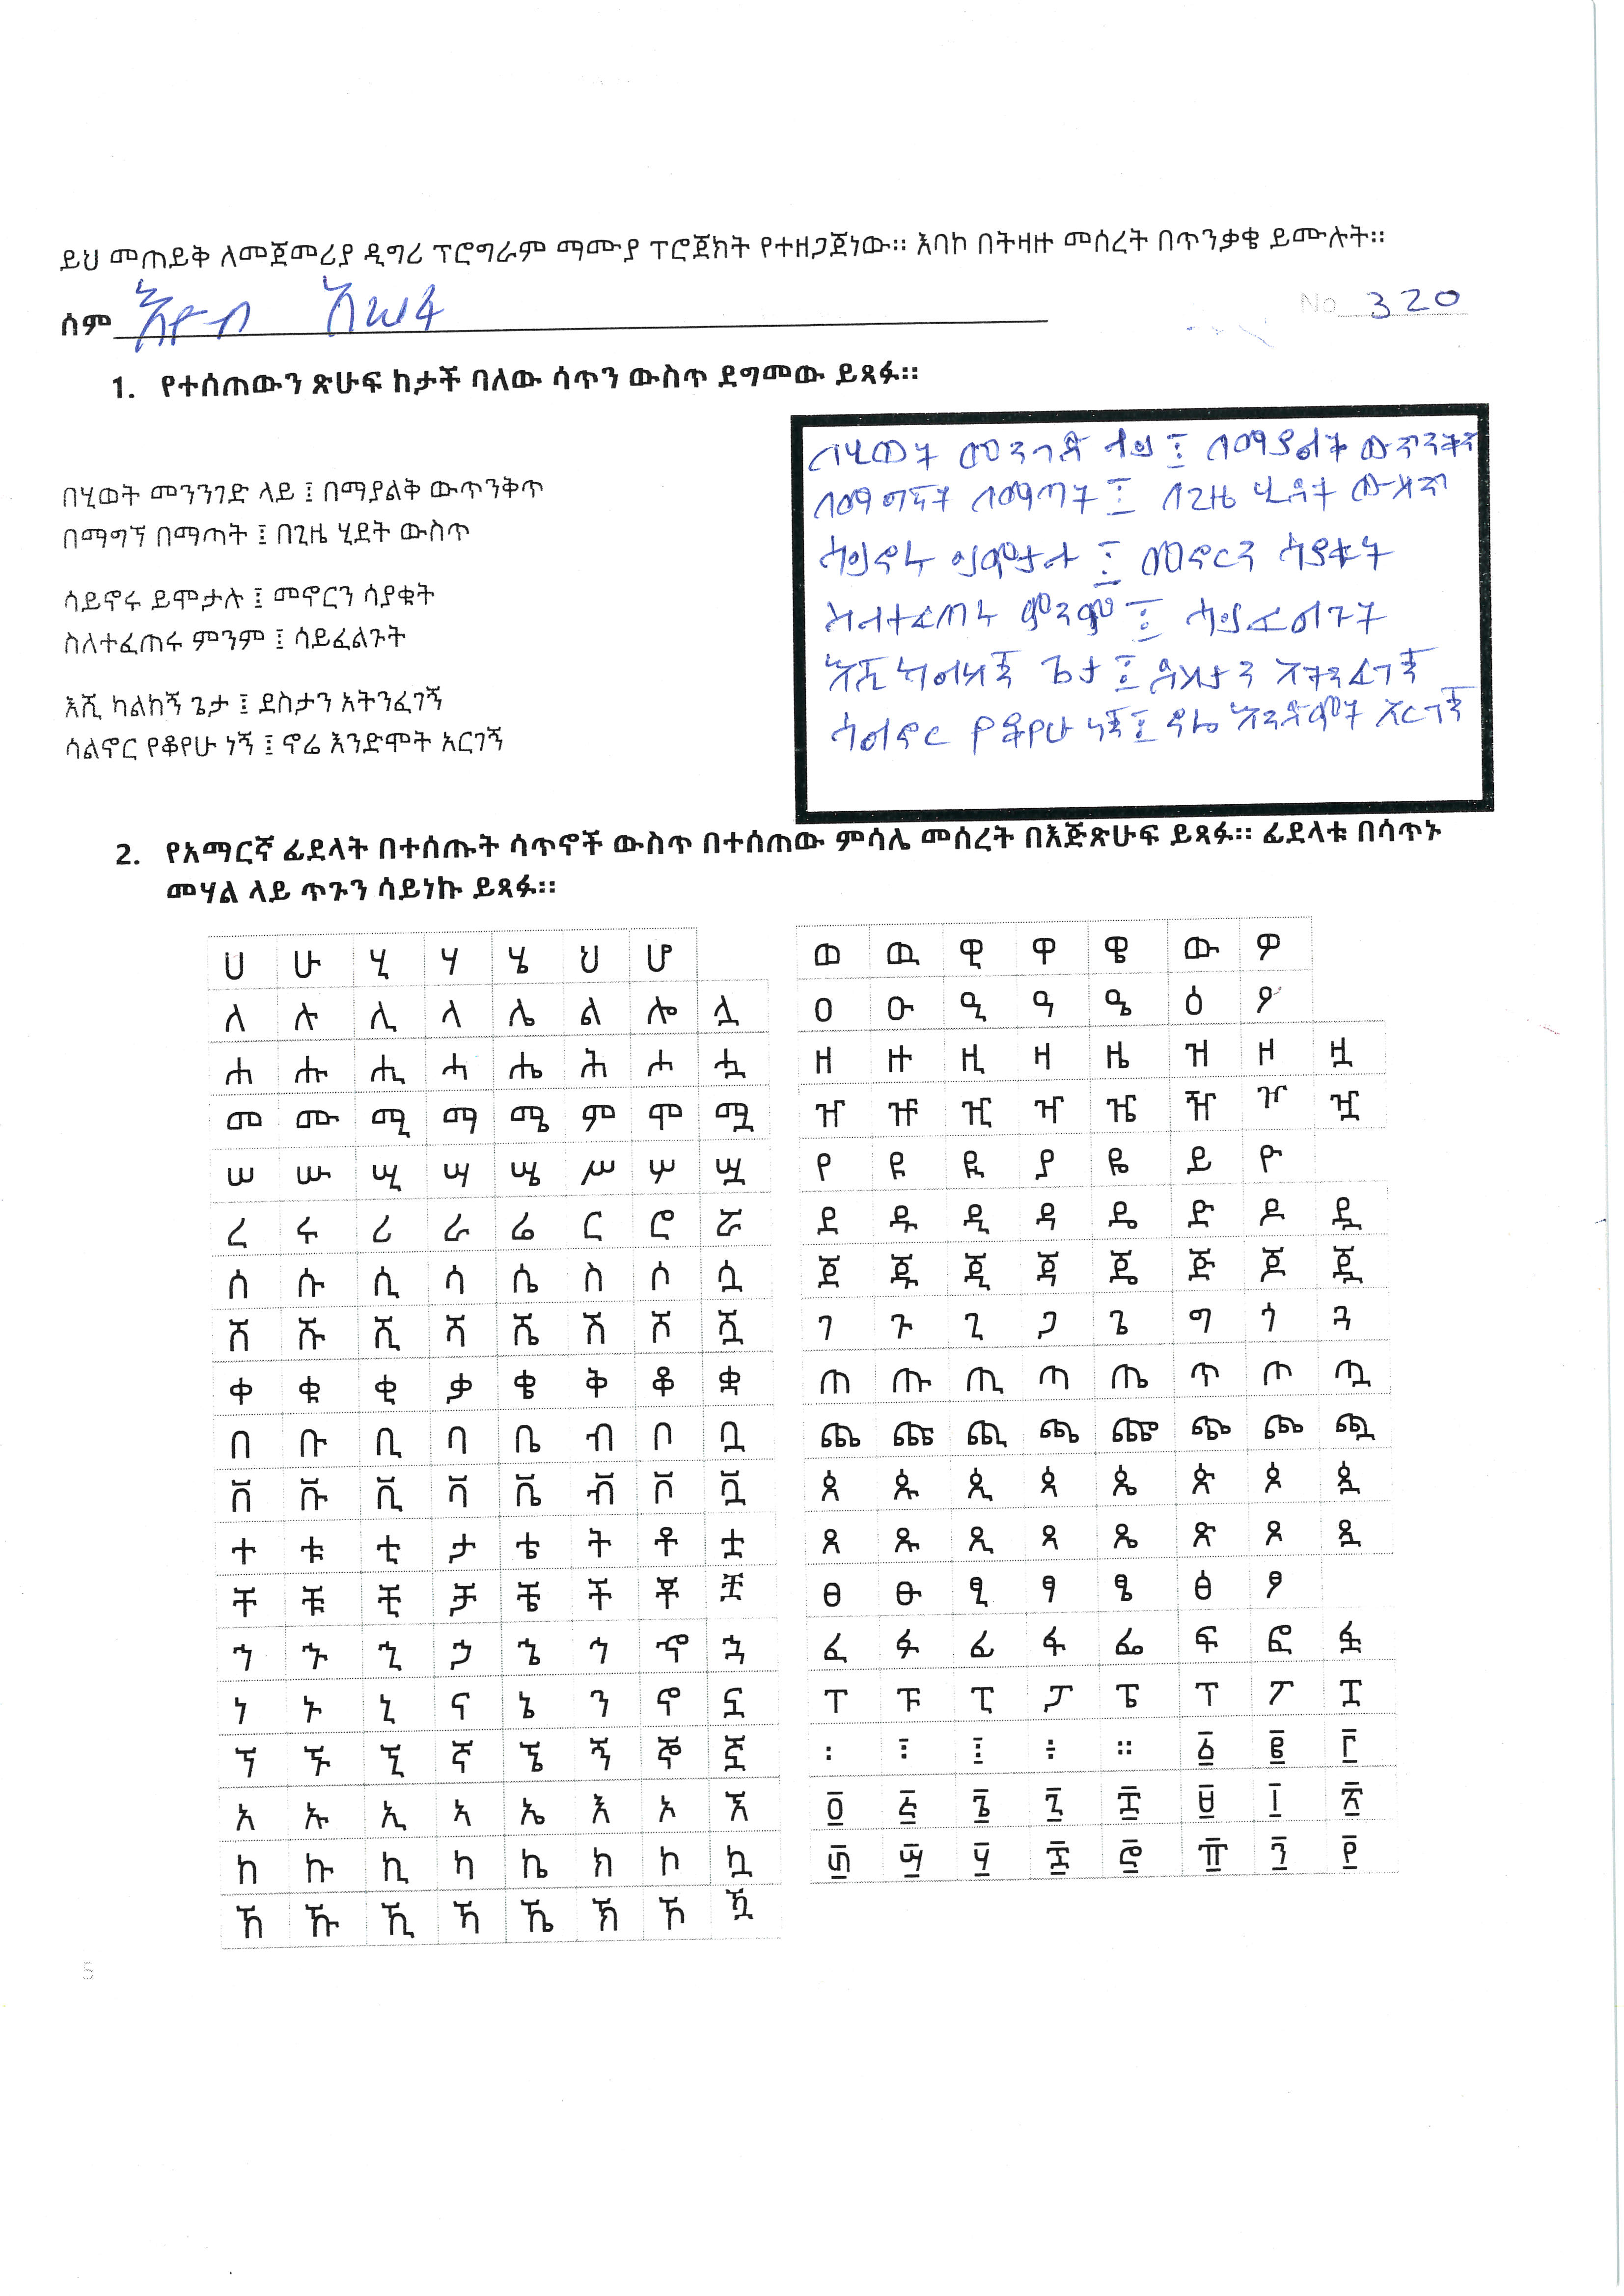 ይህ መጠይቅ ለመጀመሪያ ዲግሪ ፕሮግራም ማሙያ ፕሮጀክት የተዘጋጀነው። እባኮ በትዛዙ መሰረት በጥንቃቄ ይሙሉት።
ሰም እዮብ አሠፋ
No 320
1. የተሰጠውን ጽሁፍ ከታች ባለው ሳጥን ውስጥ ደግመው ይጻፉ።
በሂወት መንንገድ ላይ ፤ በማያልቅ ውጥንቅጥ
በማግኘ በማጣት ፤ በጊዜ ሂደት ውስጥ
ሳይኖሩ ይሞታሉ ፤ መኖርን ሳያቁት
ስለተፈጠሩ ምንም ፤ ሳይፈልጉት
እሺ ካልከኝ ጌታ ፤ ደስታን አትንፈገኝ
ሳልኖር የቆየሁ ነኝ ፤ ኖሬ እንድሞት አርገኝ
በሂወት መንገድ ላይ ፤ በማያልቅ ውጥንቅጥ
በማግኛት በማጣት ፤ በጊዜ ሂደት ውስጥ
ሳይኖሩ ይሞታሉ ፤ መኖርን ሳያቁት
ስለተፈጠሩ ምንም ፤ ሳይፈልጉት
እሺ ካልከኝ ጌታ ፤ ደስታን አትንፈገኝ
ሳልኖር የቆየሁ ነኝ ፤ ኖሬ እንድሞት አርገኝ
2. የአማርኛ ፊደላት በተሰጡት ሳጥኖች ውስጥ በተሰጠው ምሳሌ መሰረት በእጅጽሁፍ ይጻፉ። ፊደላቱ በሳጥኑ
መሃል ላይ ጥጉን ሳይነኩ ይጻፉ።
ሀ ሁ ሂ ሃ ሄ ህ ሆ
ለ ሉ ሊ ላ ሌ ል ሎ ሏ
ሐ ሑ ሒ ሓ ሔ ሕ ሖ ሗ
መ ሙ ሚ ማ ሜ ም ሞ ሟ
ሠ ሡ ሢ ሣ ሤ ሥ ሦ ሧ
ረ ሩ ሪ ራ ሬ ር ሮ ሯ
ሰ ሱ ሲ ሳ ሴ ስ ሶ ሷ
ሸ ሹ ሺ ሻ ሼ ሽ ሾ ሿ
ቀ ቁ ቂ ቃ ቄ ቅ ቆ ቋ
በ ቡ ቢ ባ ቤ ብ ቦ ቧ
ቨ ቩ ቪ ቫ ቬ ቭ ቮ ቯ
ተ ቱ ቲ ታ ቴ ት ቶ ቷ
ቸ ቹ ቺ ቻ ቼ ች ቾ ቿ
ኀ ኁ ኂ ኃ ኄ ኅ ኆ ኋ
ነ ኑ ኒ ና ኔ ን ኖ ኗ
ኘ ኙ ኚ ኛ ኜ ኝ ኞ ኟ
አ ኡ ኢ ኣ ኤ እ ኦ ኧ
ከ ኩ ኪ ካ ኬ ክ ኮ ኳ
ኸ ኹ ኺ ኻ ኼ ኽ ኾ ዃ
ወ ዉ ዊ ዋ ዌ ው ዎ
ዐ ዑ ዒ ዓ ዔ ዕ ዖ
ዘ ዙ ዚ ዛ ዜ ዝ ዞ ዟ
ዠ ዡ ዢ ዣ ዤ ዥ ዦ ዧ
የ ዩ ዪ ያ ዬ ይ ዮ
ደ ዱ ዲ ዳ ዴ ድ ዶ ዷ
ጀ ጁ ጂ ጃ ጄ ጅ ጆ ጇ
ገ ጉ ጊ ጋ ጌ ግ ጎ ጓ
ጠ ጡ ጢ ጣ ጤ ጥ ጦ ጧ
ጨ ጩ ጪ ጫ ጬ ጭ ጮ ጯ
ጰ ጱ ጲ ጳ ጴ ጵ ጶ ጷ
ጸ ጹ ጺ ጻ ጼ ጽ ጾ ጿ
ፀ ፁ ፂ ፃ ፄ ፅ ፆ
ፈ ፉ ፊ ፋ ፌ ፍ ፎ ፏ
ፐ ፑ ፒ ፓ ፔ ፕ ፖ ፗ
፡ ፣ ፤ ፥ ። ፩ ፪ ፫
፬ ፭ ፮ ፯ ፰ ፱ ፲ ፳
፴ ፵ ፶ ፷ ፸ ፹ ፺ ፻